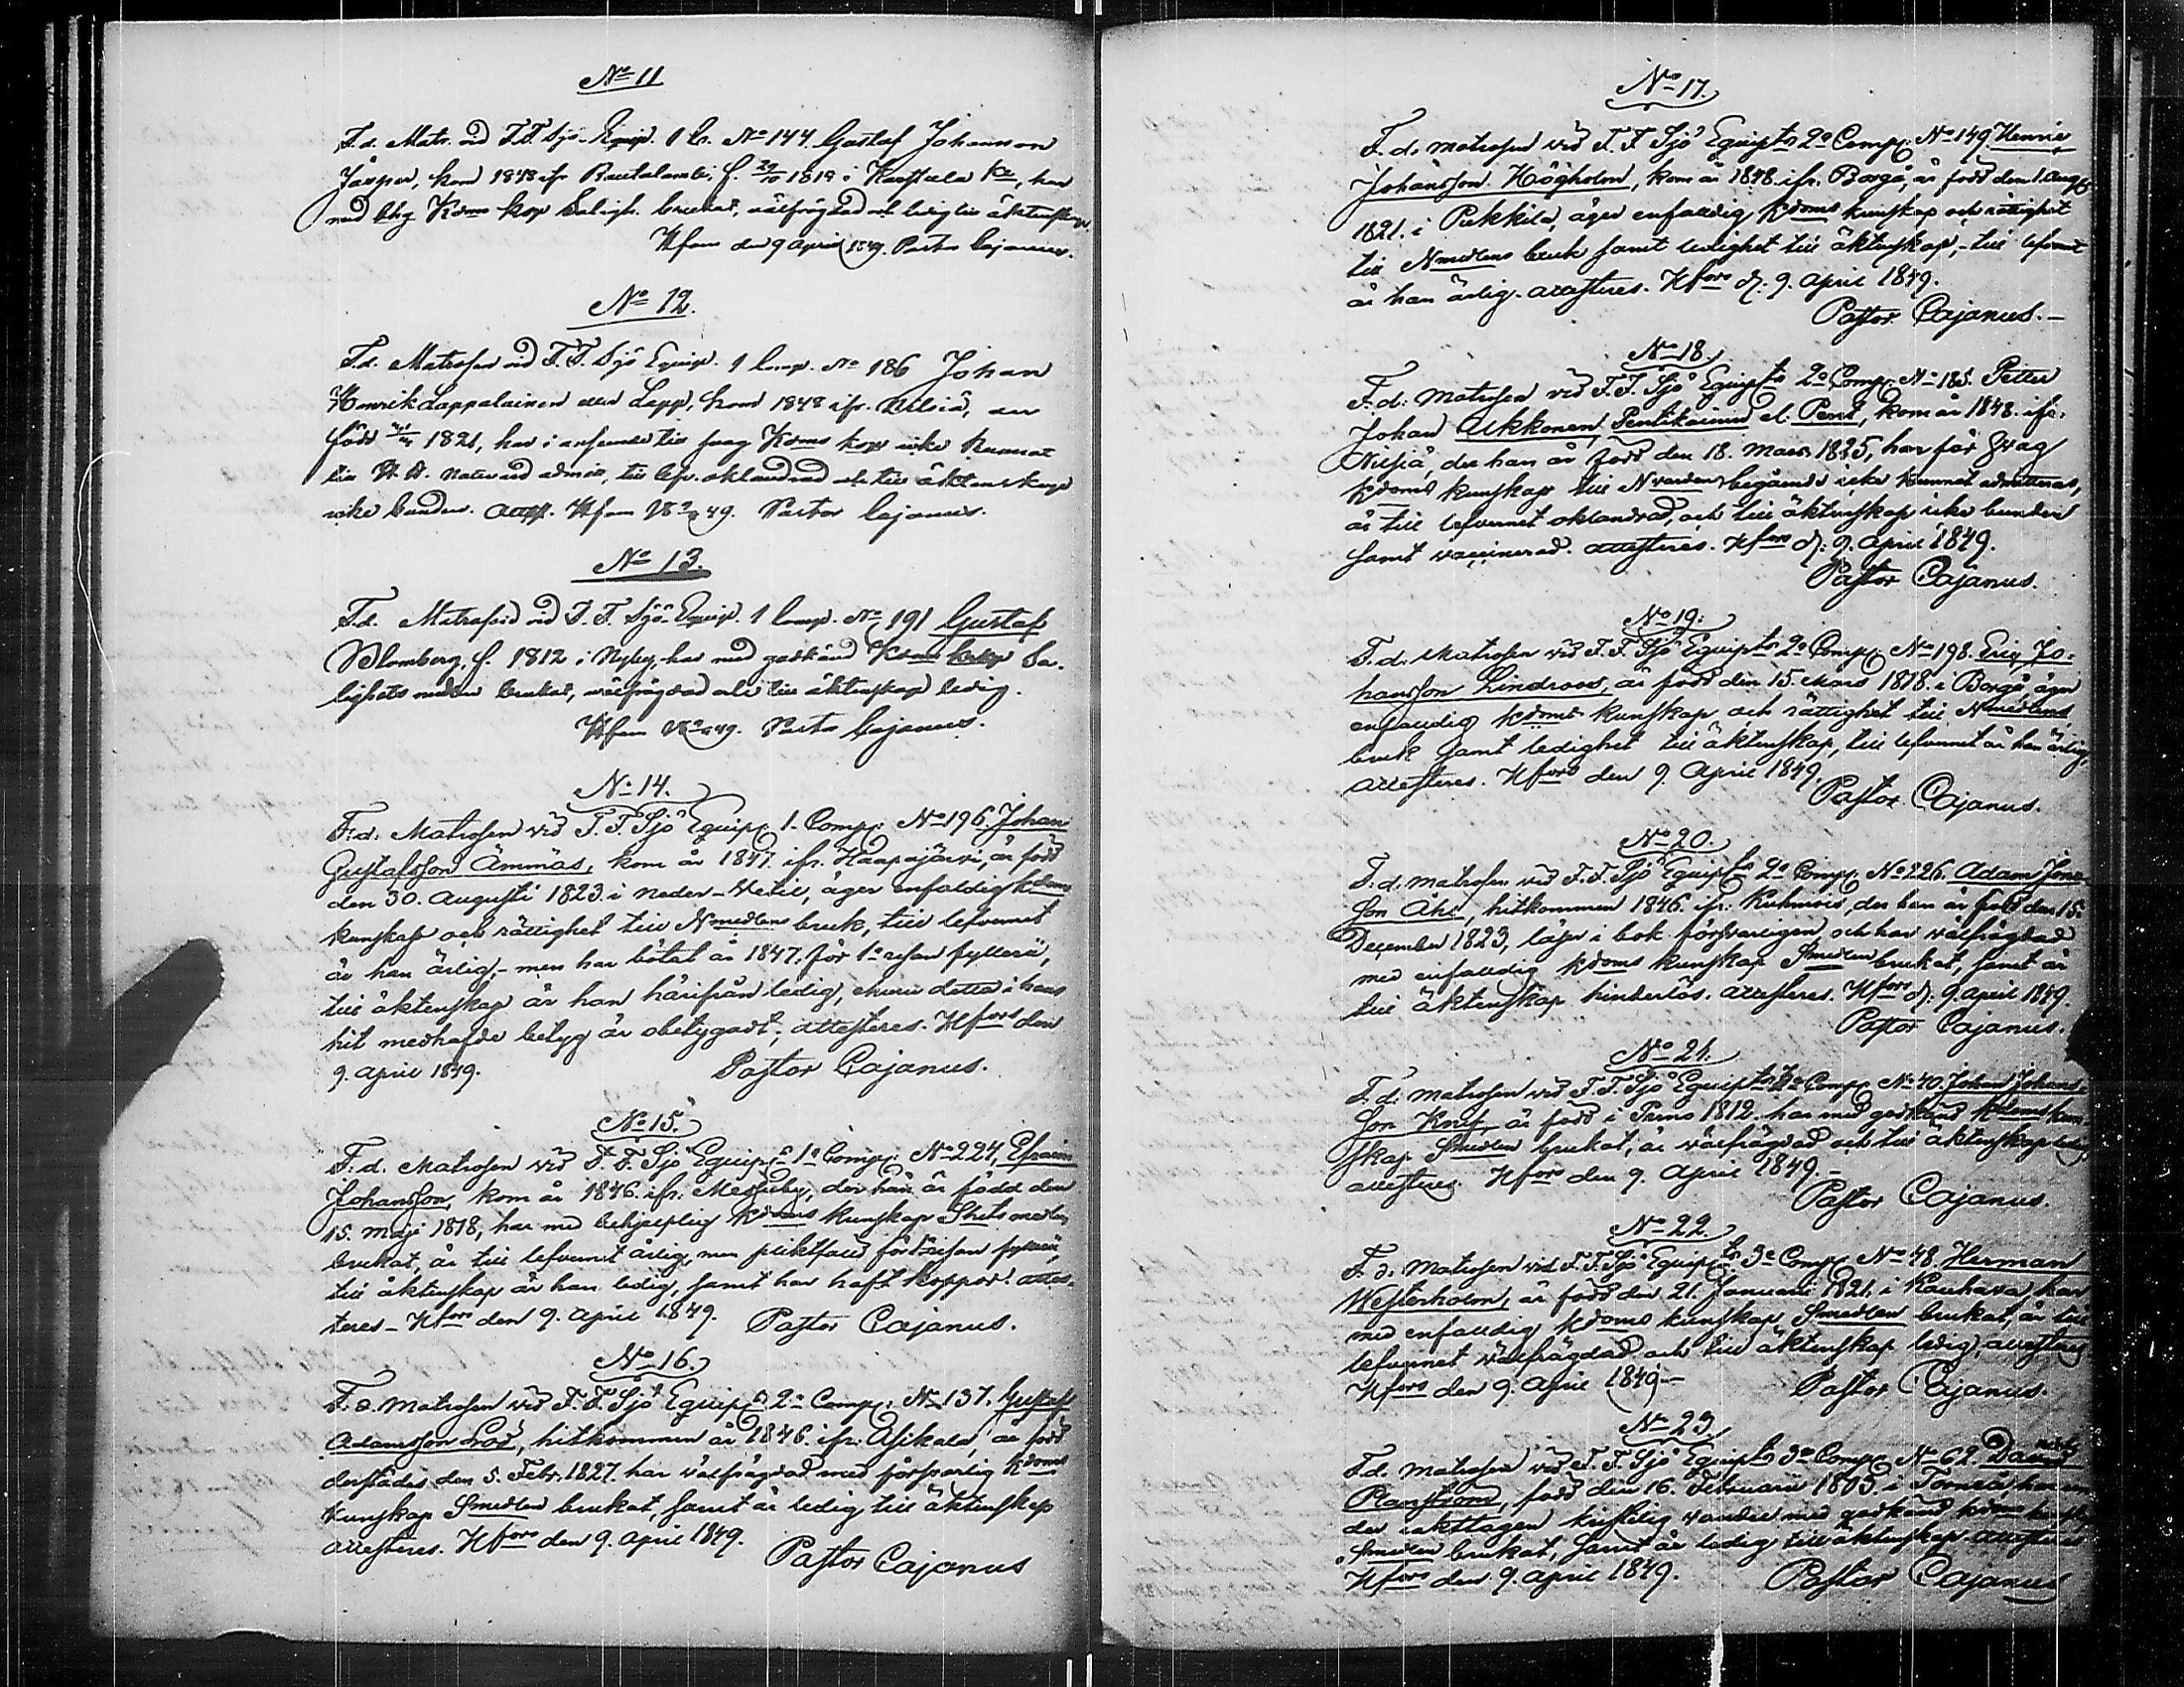 No 11
F.d. Matr. vid F.F. Sjö-Equip. 1 C. No 144 Gustaf Johansson
Jasper, kom 1848 ifr. Rautalambi, f. 20/10 1819 i Karstula, har
med Khg Kdms ksp Saligh. brukat, välfrägdad och ledig till äktenskap.
Hfors den 9 April 1849. Pastor Cajanus.
No 12.
F.d. Matrosen vid F.F. Sjö Equip. 1 Comp. No 186 Johan
Henrik Lappalainen eller Lapp, kom 1848 ifr. Nilsiä, der
född 1821, har i anseende till svag Kdms ksp icke kunnat
till H. H. Nattvard admit., till lefv. oklandrad och till äktenskap
icke bunden. Attest. Hfors 49. Pastor Cajanus.
No 13.
F.d. Matrosen vid F.F. Sjö-Equip. 1 Comp. No 191 Gustaf
Blomberg, f. 1812 i Nyby, har med godkänd Kdms ksp Sa-
lighets medlen brukat, välfrägdad och till äktenskap ledig.
Hfors 49. Pastor Cajanus.
No 14.
F.d. Matrosen vid F.F. Sjö Equip. 1. Comp: No 196. Johan
Gustafsson Ämmäs, kom år 1847. ifr. Haapajärvi, är född
den 30. Augusti 1823. i Neder-Vetil, äger enfaldig kdoms
kunskap och rättighet till Nmedlens bruk, till lefvernet
är han ärlig,- men har bötat år 1847. för 1a resan fylleri,
till äktenskap är han härifrån ledig, ehuru detta i hans
hit medhafde betyg är obetygadt; attesteres. Hfors den
9. April 1849. Pastor Cajanus.
No 15.
F.d. Matrosen vid F.F. Sjö Equip:s 1a Comp: No 224, Efraim
Johansson, kom år 1846. ifr. Messuby, der han är född den
15. Maji 1818, har med behjelplig kdoms kunskap Shetsmedlen
brukat, är till lefvernet ärlig, men pliktfäld för resan fylleri,
till äktenskap är han ledig, samt har haft koppor. attes-
teres - Hfors den 9. April 1849. Pastor Cajanus.
No 16.
F.d. Matrosen vid F.F. Sjö Equip:s 2a Comp: No 137. Gustaf
Adamsson Lod, hitkommen år 1846. ifr. Asikala, är född
derstädes den 5. Febr. 1827. har välfrägdad med försvarlig kdoms
kunskap Smedlen brukat, samt är ledig till äktenskap
attesteres. Hfors den 9. April 1849.
Pastor Cajanus
No 17.
F.d. matrosen vid F.F. Sjö Equip:ts 2a Comp: No 149 Henric
Johansson Högholm, kom år 1848. ifr. Borgå, är född den 1. Aug.
1821. i Pukkila, äger enfaldig kdoms kunskap och rättighet
till Nmedlens bruk samt ledighet till äktenskap,- till lefvernet
är han ärlig. attesteres. Hfors d. 9. April 1849.
Pastor Cajanus.-
No 18.
F.d: Matrosen vid F.F. Sjö Equip:ts 2a Comp: No 185. Petter
Johan Ukkonen, Pentikäinen el. Pent, kom år 1848. ifr.
Nilsiä, der han är född den 18. Mars 1825, har för svag
kdoms kunskap till Nvardens begående icke kunnat admitteras,
är till lefvernet oklandrad, och till äktenskap icke bunden
samt vaccinerad. attesteres. Hfors d: 9. April 1849.
Pastor Cajanus.
No 19.
F.d. Matrosen vid F.F. Sjö Equip:ts 2a Comp: No 198. Eric Jo-
hansson Lindroos, är född den 15. Mars 1818. i Borgå, äger
enfaldig kdoms kunskap och rättighet till Nmedlens
bruk samt ledighet till äktenskap, till lefvernet är han ärlig,
attesteres. Hfors den 9. April 1849.
Pastor Cajanus.
No 20.
F.d. matrosen vid F.F. Sjö Equip:ts 2a Comp: No 226. Adam Jons-
son Åhl, hitkommen 1846. ifr. Kuhmois, der han är född den 15.
December 1823, läser i bok försvarligen och har välfrägdad
med enfaldig kdoms kunskap Smedlen brukat, samt är
till äktenskap hinderlös. attesteres. Hfors d: 9. April 1849.
Pastor Cajanus.
No 21.
F.d: matrosen vid F.F. Sjö Equip:ts Comp: No 40. Johan Johans-
son Knif, är född i Perno 1812. har med godkänd kdoms kun-
skap Smedlen brukat, är välfrägdad och till äktenskap ledig,
attesteres. Hfors den 9. April 1849.-
Pastor Cajanus.
No 22.
F.d. Matrosen vid F.F. Sjö Equip:ts 3e Comp: No 48. Herman
Westerholm, är född den 21. Januarii 1821. i Kauhava, har
med enfaldig kdoms kunskap Smedlen brukat, är till
lefvernet välfrägdad och till äktenskap ledig, attesteres
Hfors den 9. April 1849.-
Pastor Cajanus.
No 23.
F.d. Matrosen vid F.F. Sjö Equip:ts 3e Comp: No 62. David
född den 16. Februarii 1805. i Torneå, har un-
der iakttagen kristelig vandel med godkänd kdoms kunskap
Smedlen brukat, samt är ledig till äktenskap. attesteres
Hfors den 9. April 1849. Pastor Cajanus